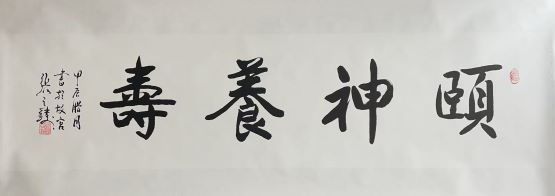 頤神養壽
甲辰腊月
書於故宮